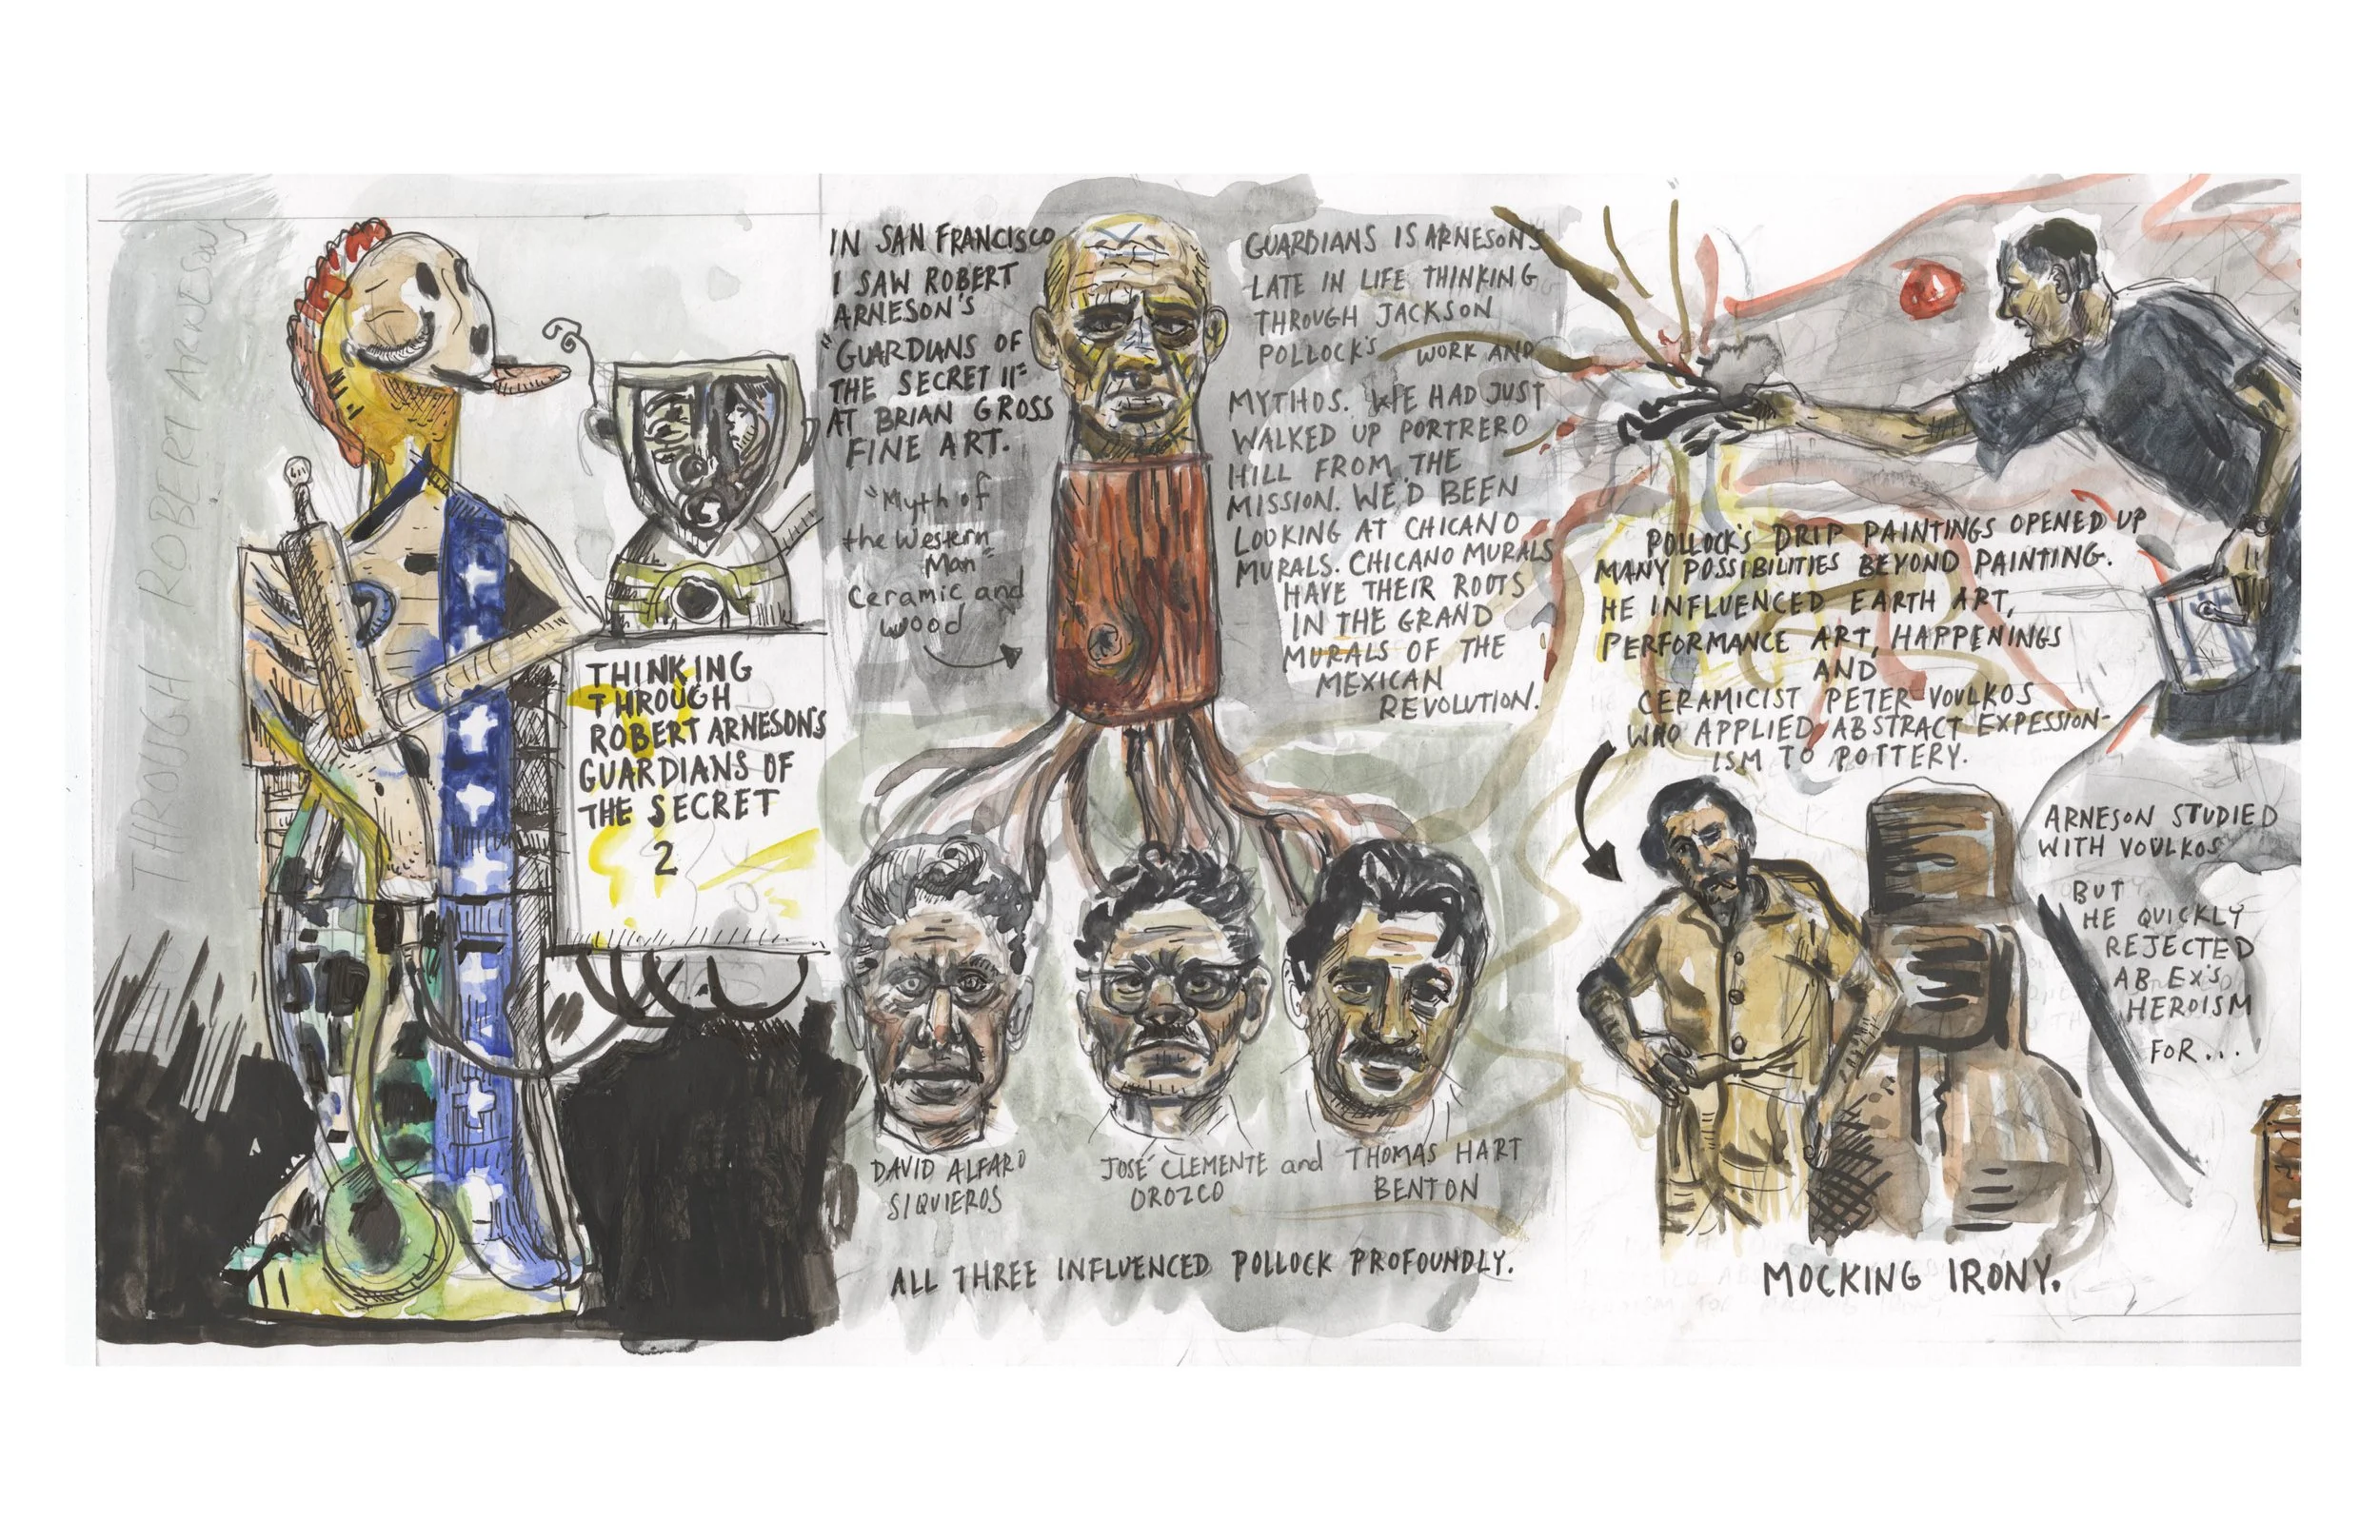 THROUGH ROBERT ARNESON
THINKING
THROUGH
ROBERT ARNESON'S
GUARDIANS OF
THE SECRET
2
IN SAN FRANCISCO
I SAW ROBERT
ARNESON'S
"GUARDIANS OF
THE SECRET II"
AT BRIAN GROSS
FINE ART.
"Myth of
the Western
Man"
Ceramic and
wood
GUARDIANS IS ARNESON'S
LATE IN LIFE THINKING
THROUGH JACKSON
POLLOCK'S WORK AND
MYTHOS. WE HAD JUST
WALKED UP PORTRERO
HILL FROM THE
MISSION. WE'D BEEN
LOOKING AT CHICANO
MURALS. CHICANO MURALS
HAVE THEIR ROOTS
IN THE GRAND
MURALS OF THE
MEXICAN
REVOLUTION.
DAVID ALFARO
SIQUIEROS
JOSÉ CLEMENTE and
OROZCO
THOMAS HART
BENTON
ALL THREE INFLUENCED POLLOCK PROFOUNDLY.
POLLOCK'S DRIP PAINTINGS OPENED UP
MANY POSSIBILITIES BEYOND PAINTING.
HE INFLUENCED EARTH ART,
PERFORMANCE ART, HAPPENINGS
AND
CERAMICIST PETER VOULKOS
WHO APPLIED ABSTRACT EXPESSION-
ISM TO POTTERY.
ARNESON STUDIED
WITH VOULKOS
BUT
HE QUICKLY
REJECTED
AB EX'S
HEROISM
FOR...
MOCKING IRONY.